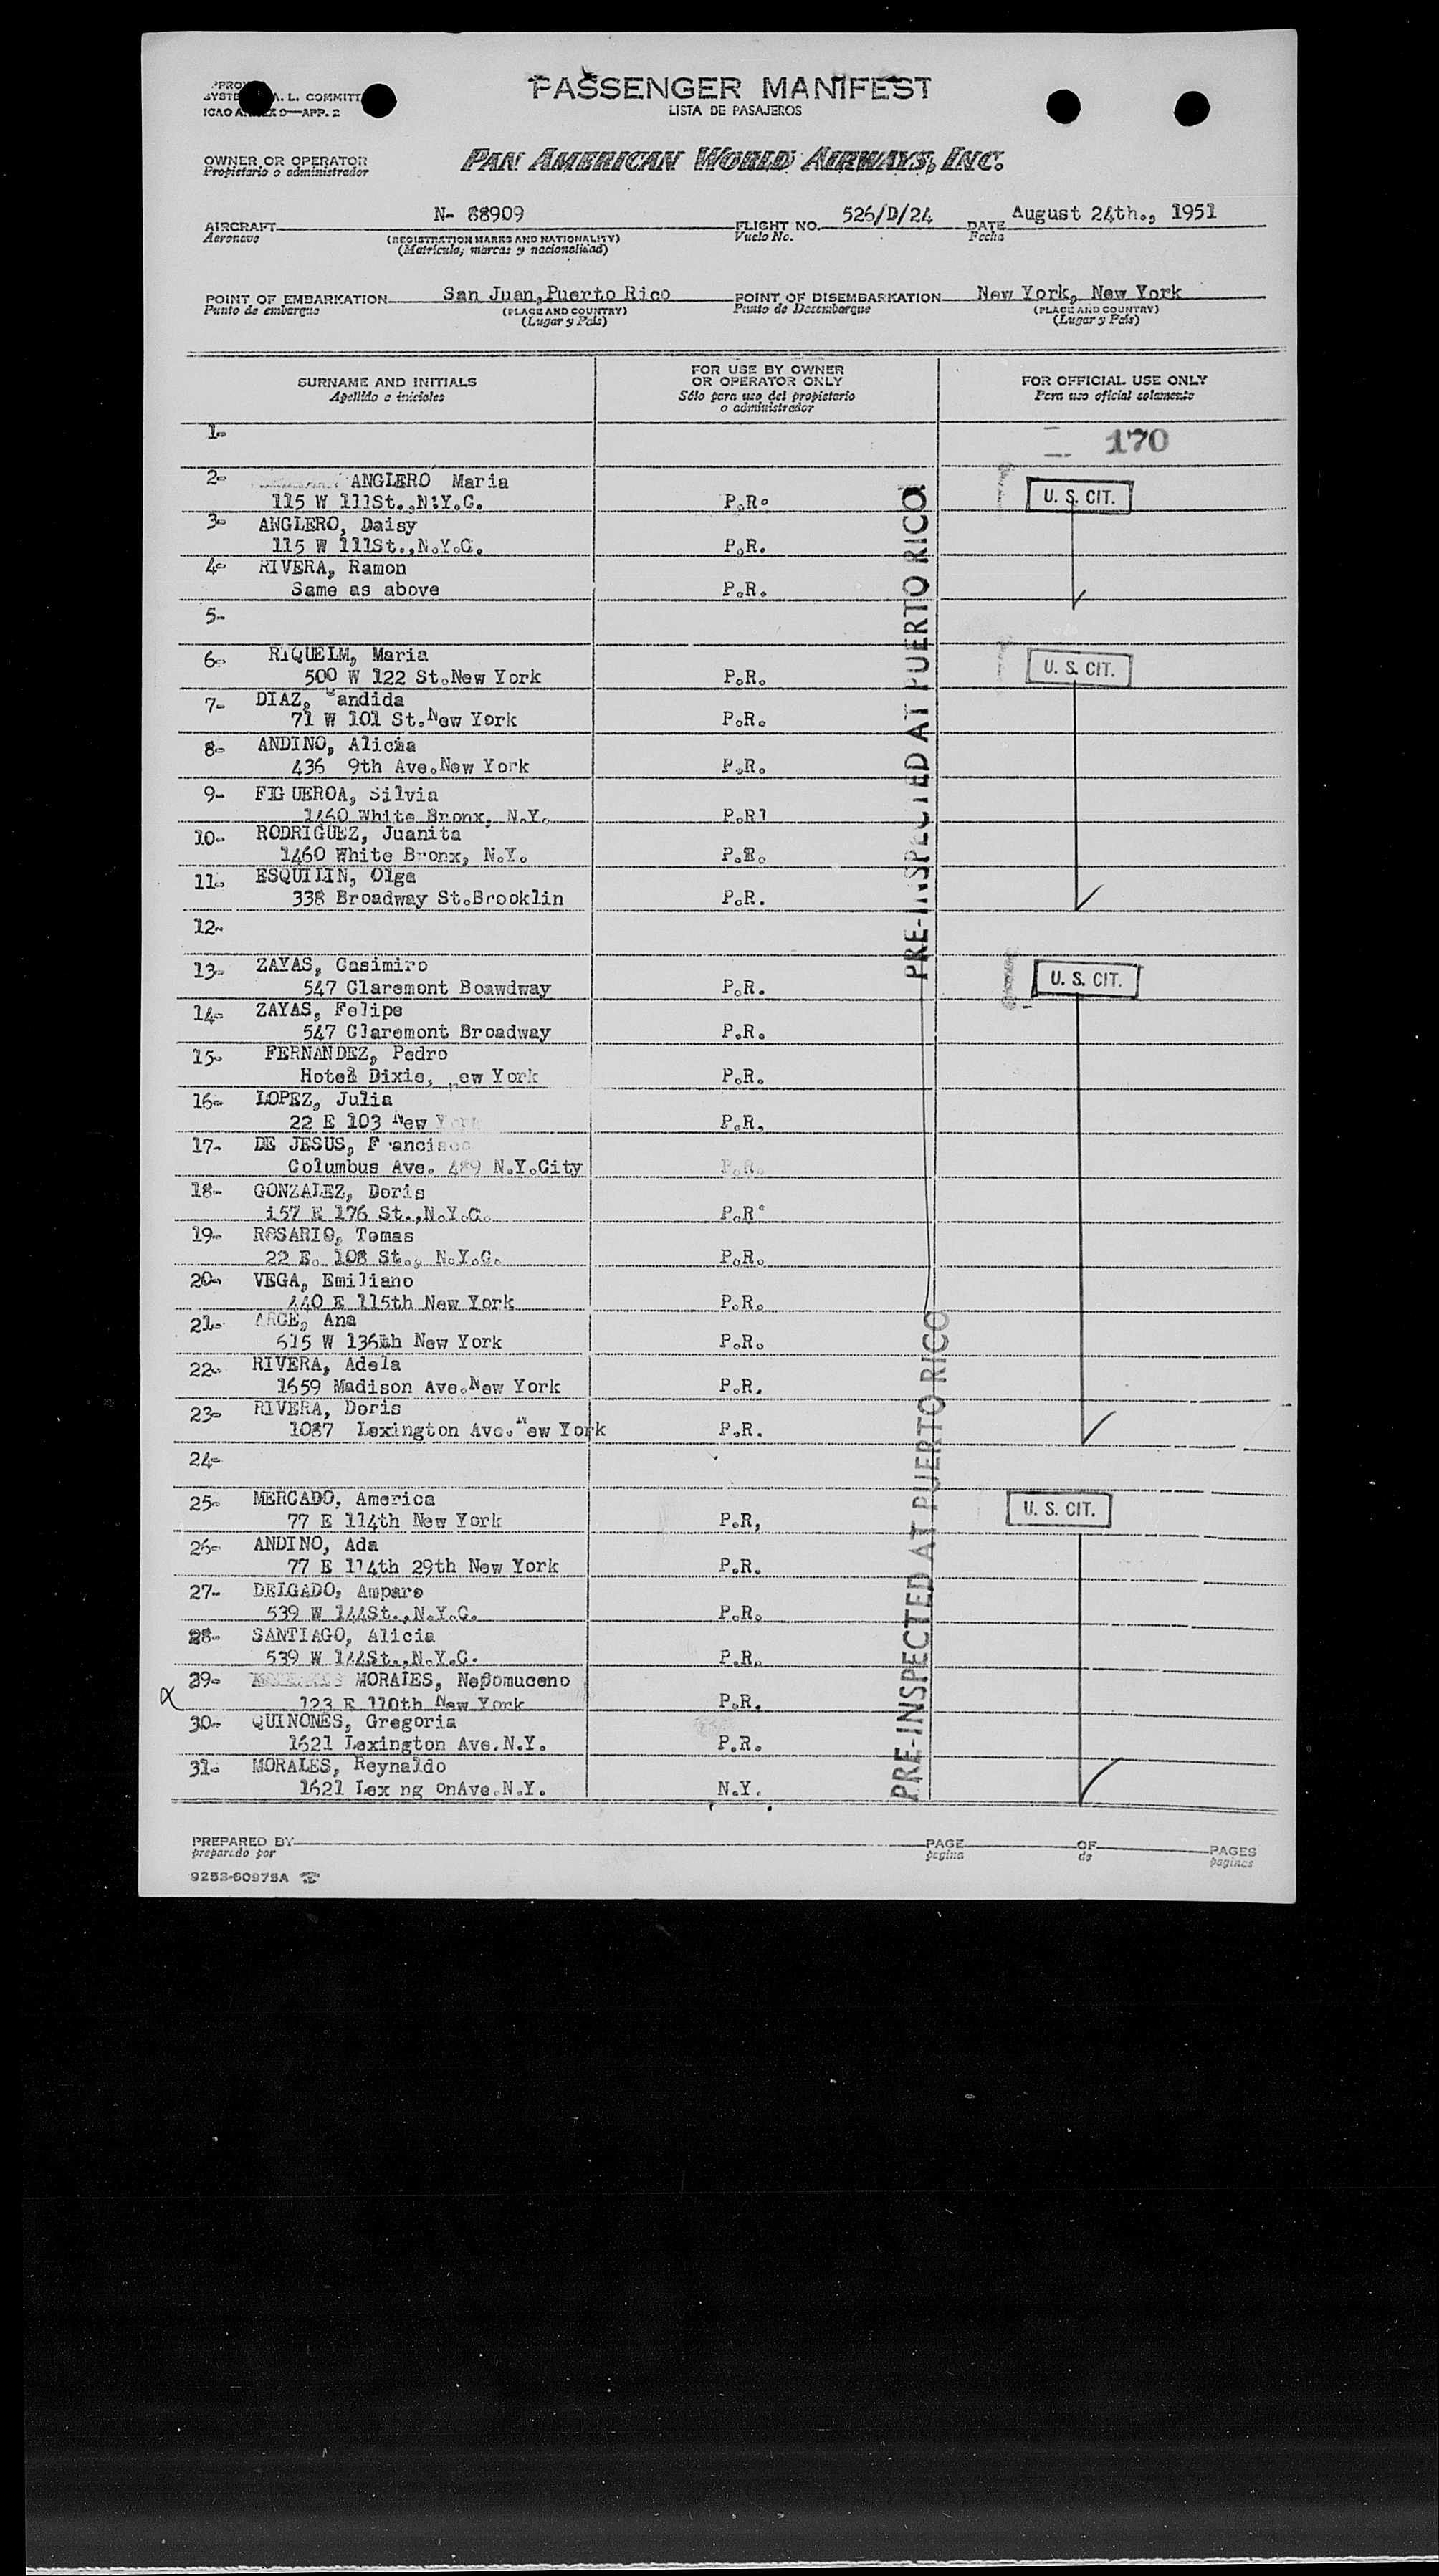 PASSENGER MANIFEST
LISTA DE PASAJEROS
A. L. COMMITT
ICAO APP. 2
OWNER OR OPERATOR
Propietario o administrador
PAN AMERICAN WORLD AIRWAYS, INC.
AIRCRAFT N- 88909 FLIGHT NO. 526/D/24 DATE August 24th., 1951
Aeronave (REGISTRATION MARKS AND NATIONALITY) Vuelo No. Fecha
(Matricula, marcas y nacionalidad)
POINT OF EMBARKATION San Juan, Puerto Rico POINT OF DISEMBARKATION New York, New York
Punto de embarque (PLACE AND COUNTRY) Punto de Desembarque (PLACE AND COUNTRY)
(Lugar y País) (Lugar y País)
SURNAME AND INITIALS FOR USE BY OWNER OR OPERATOR ONLY FOR OFFICIAL USE ONLY
Apellido e iniciales Sólo para uso del propietario o administrador Para uso oficial solamente
1- 170
2- ANGLERO Maria
115 W 111St.,N.Y.C. P.R. U. S. CIT.
3- ANGLERO, Daisy
115 W 111St.,N.Y.C. P.R.
4- RIVERA, Ramon
Same as above P.R.
5-
6- RIQUELM, Maria
500 W 122 St.New York P.R. U. S. CIT.
7- DIAZ, Candida
71 W 101 St.New York P.R.
8- ANDINO, Alicia
436 9th Ave.New York P.R.
9- FIGUEROA, Silvia
1460 White Bronx, N.Y. P.R]
10- RODRIGUEZ, Juanita
1460 White Bronx, N.Y. P.R.
11- ESQUILIN, Olga
338 Broadway St.Brooklin P.R.
12-
13- ZAYAS, Casimiro
547 Claremont Boawdway P.R. U. S. CIT.
14- ZAYAS, Felipe
547 Claremont Broadway P.R.
15- FERNANDEZ, Pedro
Hotel Dixie, ew York P.R.
16- LOPEZ, Julia
22 E 103 New York P.R.
17- DE JESUS, F ancisco
Columbus Ave. 489 N.Y.City P.R.
18- GONZALEZ, Doris
157 E 176 St.,N.Y.C. P.R.
19- ROSARIO, Tomas
22 E. 108 St., N.Y.C. P.R.
20- VEGA, Emiliano
440 E 115th New York P.R.
21- ARCE, Ana
615 W 136th New York P.R.
22- RIVERA, Adela
1659 Madison Ave.New York P.R.
23- RIVERA, Doris
1087 Lexington Ave.New York P.R.
24-
25- MERCADO, America
77 E 114th New York P.R, U. S. CIT.
26- ANDINO, Ada
77 E 114th 29th New York P.R.
27- DELGADO, Amparo
539 W 144St.,N.Y.C. P.R.
28- SANTIAGO, Alicia
539 W 144St.,N.Y.C. P.R.
29- MORALES, Nepomuceno
123 E 110th New York P.R.
30- QUINONES, Gregoria
1621 Lexington Ave.N.Y. P.R.
31- MORALES, Reynaldo
1621 Lex ng onAve.N.Y. N.Y.
PRE-INSPECTED AT PUERTO RICO
PRE-INSPECTED AT PUERTO RICO
PREPARED BY PAGE OF PAGES
preparado por pagina de paginas
9253-60975A